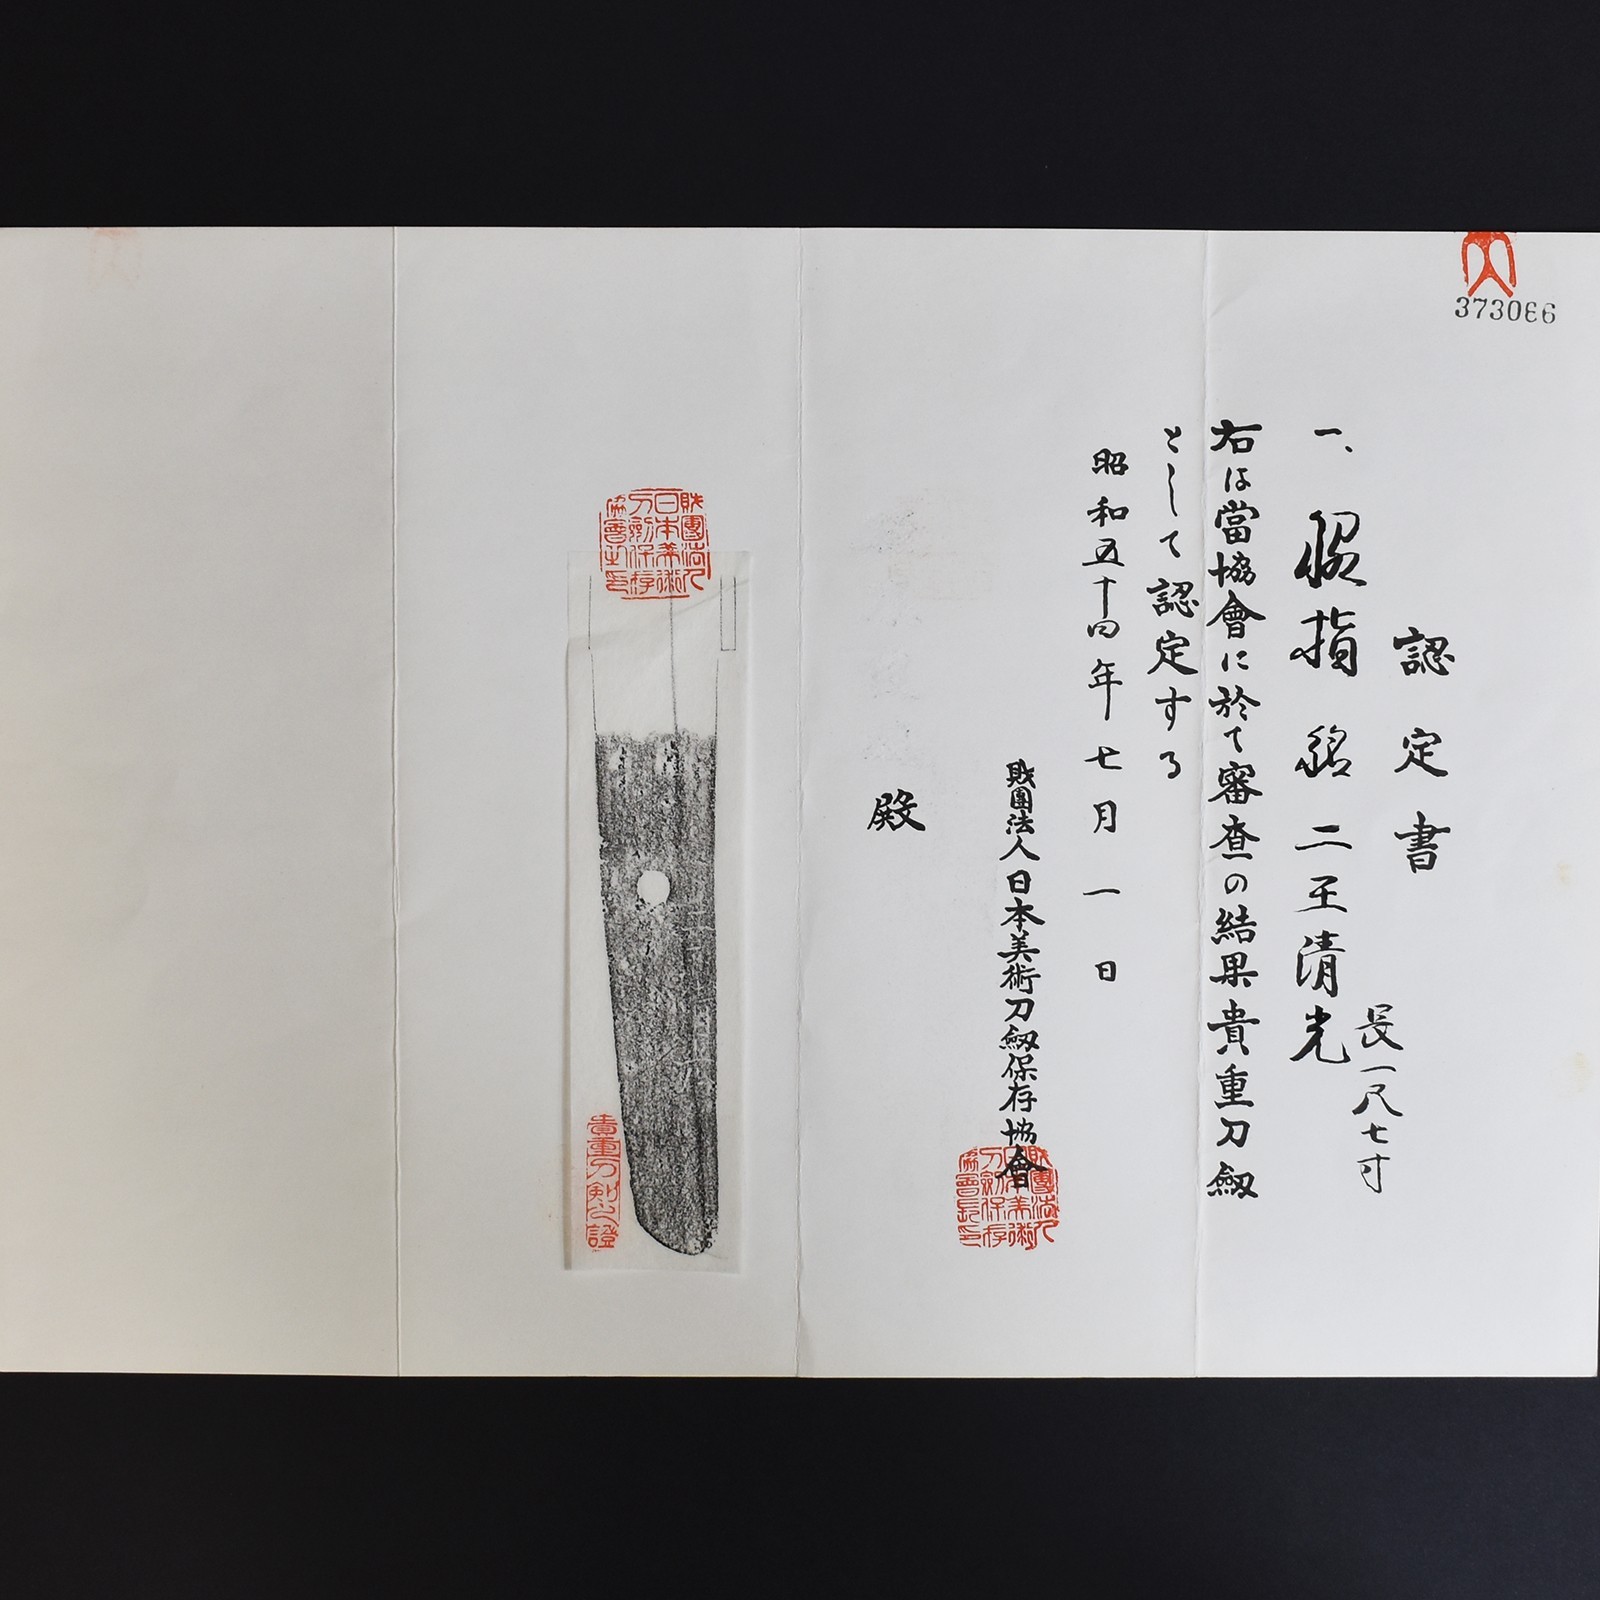 373086
認定書
一、脇指 銘 二王清光
長一尺七寸
右は當協會に於て審査の結果貴重刀剱
として認定する
昭和五十四年七月一日
財團法人日本美術刀剱保存協會
財團法人日本美術刀剣保存協會長印
殿
財團法人日本美術刀剣保存協會之印
貴重刀剣之證